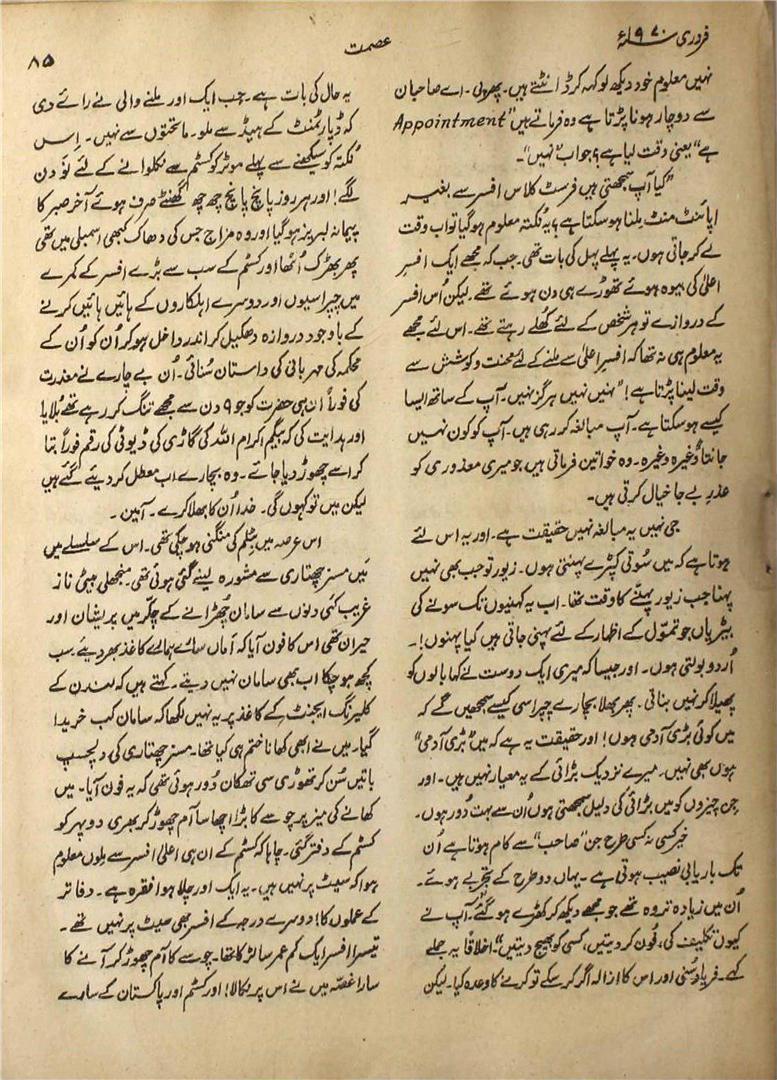 فروری ۱۹۷۰ء
عصمت
۸۵
نہیں معلوم خود دیکھ لو کہہ کر ڈانٹتے ہیں۔ پھر پی۔ اے صاحبان
سے دوچار ہونا پڑتا ہے وہ فرماتے ہیں "Appointment
ہے" یعنی وقت لیا ہے؟ جواب "نہیں"۔
"کیا آپ سمجھتی ہیں فرسٹ کلاس افسر سے بغیر
اپائنٹ منٹ ملنا ہو سکتا ہے؟ یہ نکتہ معلوم ہو گیا تو اب وقت
لے کر جاتی ہوں۔ یہ پہلے پہل کی بات تھی۔ جب کہ مجھے ایک افسر
اعلیٰ کی بیوہ ہوئے تھوڑے ہی دن ہوئے تھے۔ لیکن اُس افسر
کے دروازے تو ہر شخص کے لئے کُھلے رہتے تھے۔ اس لئے مجھے
یہ معلوم ہی نہ تھا کہ افسرِ اعلیٰ سے ملنے کے لئے محنت و کوشش سے
وقت لینا پڑتا ہے! "نہیں نہیں ہرگز نہیں۔ آپ کے ساتھ ایسا
کیسے ہو سکتا ہے۔ آپ مبالغہ کر رہی ہیں۔ آپ کو کون نہیں
جانتا" وغیرہ وغیرہ۔ وہ خواتین فرماتی ہیں جو میری معذوری کو
عذرِ بے جا خیال کرتی ہیں۔
جی نہیں یہ مبالغہ نہیں حقیقت ہے۔ اور یہ اس لئے
ہوتا ہے کہ میں سُوتی کپڑے پہنتی ہوں۔ زیور تو جب بھی نہیں
پہنا جب زیور پہننے کا وقت تھا۔ اب یہ کہنیوں تک سونے کی
بیڑیاں جو تموّل کے اظہار کے لئے پہنی جاتی ہیں کیا پہنوں!۔
اُردو بولتی ہوں۔ اور جیسا کہ میری ایک دوست نے کہا بالوں کو
پھیلا کر نہیں بناتی۔ پھر بھلا بچارے چپراسی کیسے سمجھیں گے کہ
میں کوئی بڑی آدمی ہوں! اور حقیقت یہ ہے کہ میں "بڑی آدمی"
ہوں بھی نہیں۔ میرے نزدیک بڑائی کے یہ معیار نہیں ہیں۔ اور
جِن چیزوں کو میں بڑائی کی دلیل سمجھتی ہوں اُن سے بہت دُور ہوں۔
خیر کسی نہ کسی طرح جن "صاحب" سے کام ہوتا ہے اُن
تک باریابی نصیب ہوتی ہے۔ یہاں دو طرح کے تجربے ہوئے۔
اُن میں زیادہ تر وہ تھے جو مجھے دیکھ کر کھڑے ہو گئے۔ "آپ نے
کیوں تکلیف کی، فون کر دیتیں، کسی کو بھیج دیتیں" اخلاقاً یہ جملے
کہے۔ فریاد سُنی اور اس کا ازالہ اگر کر سکے تو کرنے کا وعدہ کیا۔ لیکن
یہ حال کی بات ہے۔ جب ایک اور ملنے والی نے رائے دی
کہ ڈپارٹمنٹ کے ہیڈ سے ملو۔ ماتحتوں سے نہیں۔ اِس
نُکتہ کو سیکھنے سے پہلے موٹر کو کسٹم سے نکلوانے کے لئے نَو دن
لگے! اور ہر روز پانچ پانچ چھ چھ گھنٹے صرف ہوئے آخر صبر کا
پیمانہ لبریز ہو گیا اور وہ مزاج جس کی دھاک کبھی اسمبلی میں تھی
پھر بھڑک اُٹھا اور کسٹم کے سب سے بڑے افسر کے کمرے
میں چپراسیوں اور دوسرے اہلکاروں کے ہائیں ہائیں کرنے
کے باوجود دروازہ دھکیل کر اندر داخل ہو کر اُن کو اُن کے
محکمہ کی مہربانی کی داستان سُنائی۔ اُن بے چارے نے معذرت
کی فوراً ان ہی حضرت کو جو ۹ دن سے مجھے تنگ کر رہے تھے بُلایا
اور ہدایت کی کہ بیگم اکرام اللہ کی گاڑی کی ڈیوٹی کی رقم فوراً بتا
کر اسے چھوڑ دیا جائے۔ وہ بچارے اب معطل کر دیئے گئے ہیں
لیکن میں تو کہوں گی۔ خدا اُن کا بھلا کرے۔ آمین۔
اس عرصہ میں بیٹے کی منگنی ہو چکی تھی۔ اس کے سلسلے میں
مَیں مسز چھتاری سے مشورہ لینے گئی ہوئی تھی۔ منجھلی بیٹی ناز
غریب کئی دنوں سے سامان چُھڑانے کے چکّر میں پریشان اور
حیران تھی اس کا فون آیا کہ اماں سارے ہمارے کاغذ بھر دیئے سب
کچھ ہو چکا اب بھی سامان نہیں دیتے۔ کہتے ہیں کہ لندن کے
کلیرنگ ایجنٹ کے کاغذ پر یہ نہیں لکھا کہ سامان کب خریدا
گیا۔ میں نے ابھی کھانا ختم ہی کیا تھا۔ مسز چھتاری کی دلچسپ
باتیں سُن کر تھوڑی سی تھکان دُور ہوئی تھی کہ یہ فون آیا۔ میں
کھانے کی میز پر چوسے کا بڑا اچھا سا آم چھوڑ کر بھری دوپہر کو
کسٹم کے دفتر گئی۔ چاہا کہ کسٹم کے ان ہی اعلیٰ افسر سے مِلوں معلوم
ہوا کہ سیٹ پر نہیں ہیں۔ یہ ایک اور چلا ہوا فقرہ ہے۔ دفاتر
کے عملوں کا! دوسرے درجہ کے افسر بھی سیٹ پر نہیں تھے۔
تیسرا افسر ایک کم عمر سا لڑکا تھا۔ چوسے کا آم چھوڑ کر آنے کا
سارا غصّہ میں نے اس پر نکالا! اور کسٹم اور پاکستان کے سارے